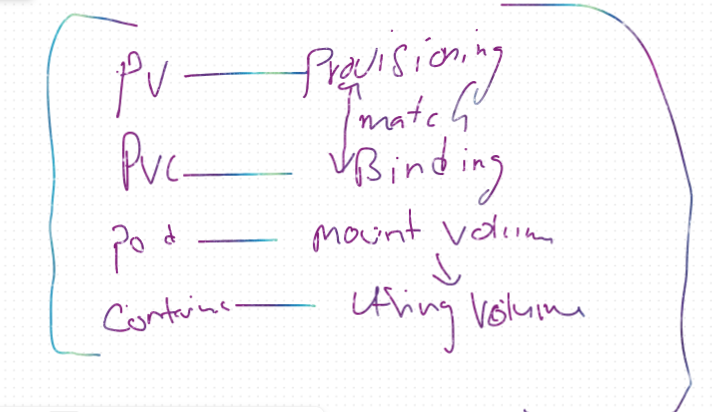 PV — Provisioning
match
PVC — Binding
Pod — mount volum
Containe — Using Volume